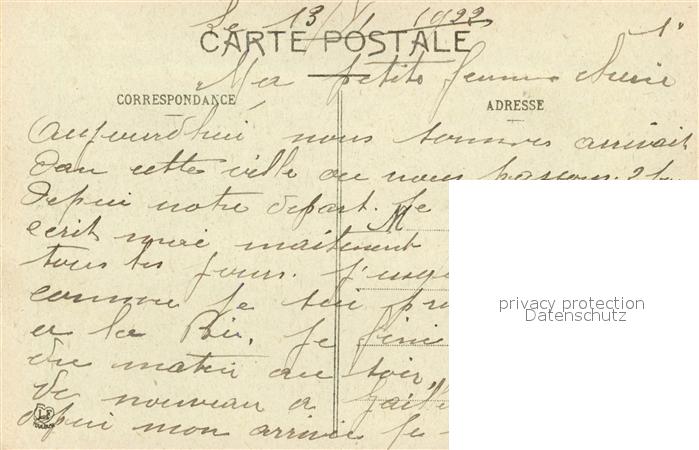 Le 13/ 1922
1°
CARTE POSTALE
Ma petite femme chérie
CORRESPONDANCE
ADRESSE
Aujourdhui nous sommes arrivait
Dan cette ville ou nous passons
Depui notre depart. Je
M
ecrit moi maitenent
tous les jours. J'usq
comme je
a la je fini
du matin au soir,
De nouveau a
depui mon arrivée je
privacy protection
Datenschutz